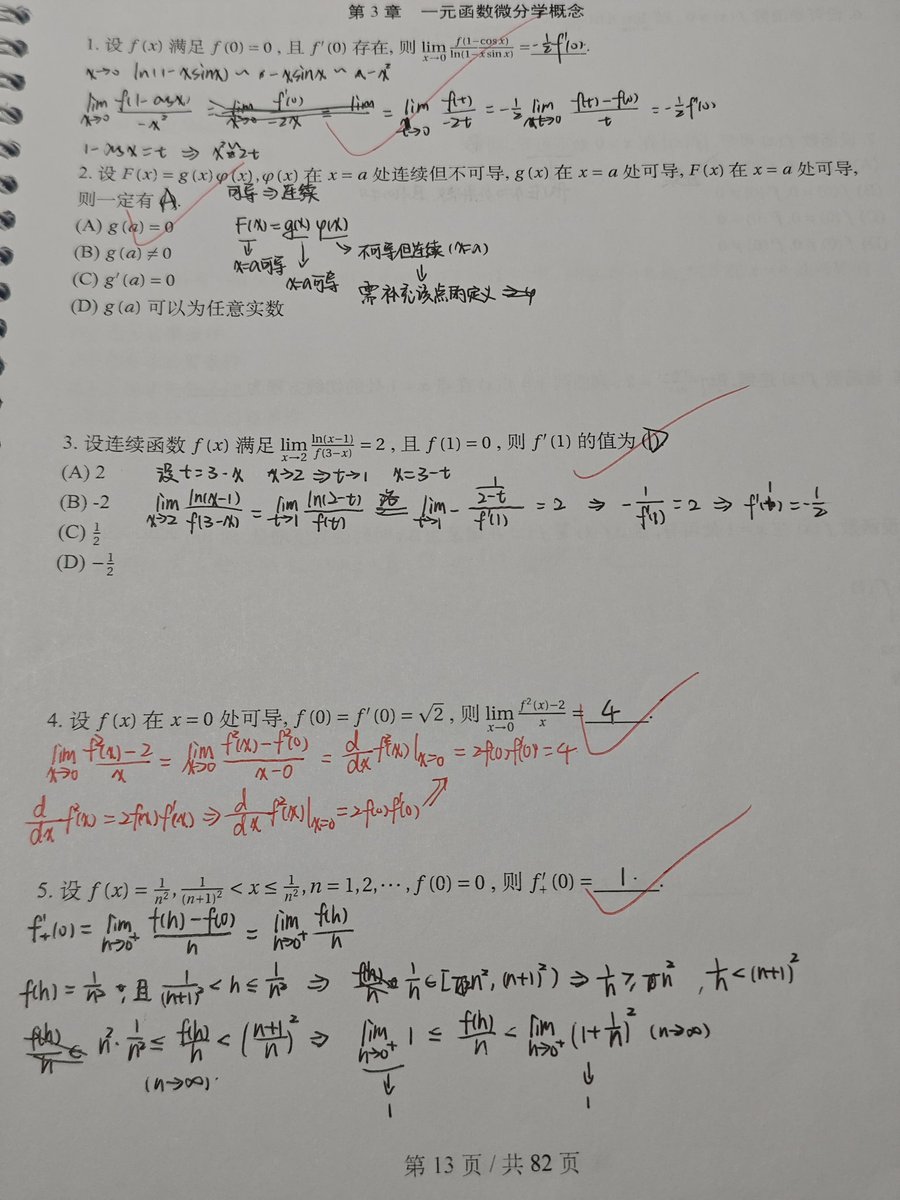 第 3 章 一元函数微分学概念
1. 设 f(x) 满足 f(0)=0, 且 f′(0) 存在, 则 lim_{x→0} f(1−cosx)/ln(1−x sinx) = −½f′(0).
x→0 ln(1−xsinx) ~ −xsinx ~ −x²
lim_{x→0} f(1−cosx)/−x² = lim_{x→0} f′(0)/−2x = lim = lim_{t→0} f(t)/−2t = −½ lim_{t→0} f(t)−f(0)/t = −½f′(0)
1−cosx=t ⇒ x²=2t
2. 设 F(x)=g(x)φ(x), φ(x) 在 x=a 处连续但不可导, g(x) 在 x=a 处可导, F(x) 在 x=a 处可导,
则一定有 A. 可导⇒连续
(A) g(a)=0 F(x)=g(x)φ(x)
(B) g(a)≠0 x=a可导 不可导但连续(x=a)
(C) g′(a)=0 x=a可导 需补充该点的定义
(D) g(a) 可以为任意实数
3. 设连续函数 f(x) 满足 lim_{x→2} ln(x−1)/f(3−x) = 2, 且 f(1)=0, 则 f′(1) 的值为 D
(A) 2 设 t=3−x x→2 ⇒ t→1 x=3−t
(B) -2 lim_{x→2} ln(x−1)/f(3−x) = lim_{t→1} ln(2−t)/f(t) 洛 lim_{t→1} − (1/(2−t))/f′(1) = 2 ⇒ −1/f′(1) = 2 ⇒ f′(1)=−½
(C) ½
(D) −½
4. 设 f(x) 在 x=0 处可导, f(0)=f′(0)=√2, 则 lim_{x→0} f²(x)−2/x = 4.
lim_{x→0} f²(x)−2/x = lim_{x→0} f²(x)−f²(0)/x−0 = d/dx f²(x)|x=0 = 2f(0)f′(0)=4
d/dx f²(x) = 2f(x)f′(x) ⇒ d/dx f²(x)|x=0 = 2f(0)f′(0)
5. 设 f(x)=1/n², 1/(n+1)² < x ≤ 1/n², n=1,2,⋯, f(0)=0, 则 f′₊(0)= 1.
f′₊(0) = lim_{h→0⁺} f(h)−f(0)/h = lim_{h→0⁺} f(h)/h
f(h)=1/n², 且 1/(n+1)² < h ≤ 1/n² ⇒ f(h)/h 1/h ∈ [n², (n+1)²) ⇒ 1/h ≥ n², 1/h < (n+1)²
f(h)/h n²·1/n² ≤ f(h)/h < ((n+1)/n)² ⇒ lim_{h→0⁺} 1 ≤ f(h)/h < lim_{h→0⁺} (1+1/n)² (n→∞)
(n→∞) 1 1
第 13 页 / 共 82 页